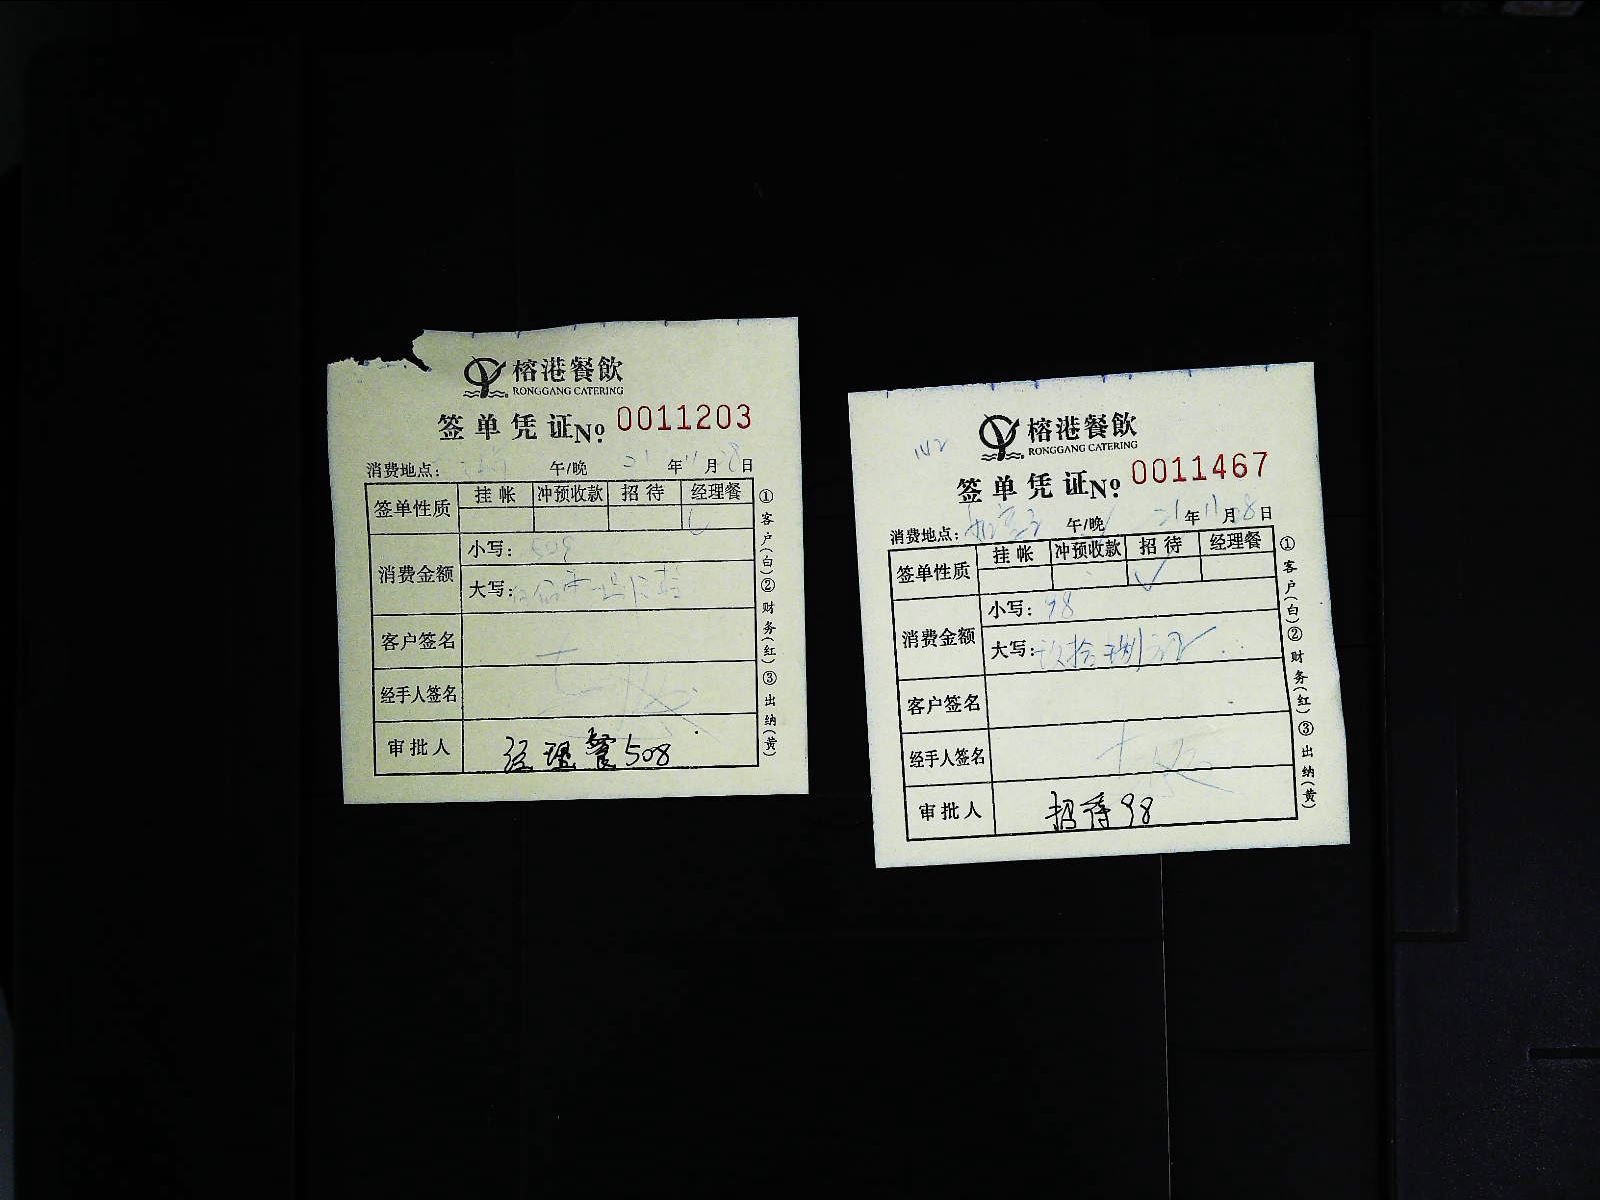 榕港餐飲
RONGGANG CATERING
签单凭证No. 0011203
消费地点： 午/晚 21年11月28日
签单性质 挂帐 冲预收款 招待 经理餐
消费金额
小写：508
大写：
客户签名
经手人签名
审批人 经理餐508
①客户(白)②财务(红)③出纳(黄)
142
榕港餐飲
RONGGANG CATERING
签单凭证No. 0011467
消费地点： 午/晚 21年11月28日
签单性质 挂帐 冲预收款 招待 经理餐
✓
消费金额
小写：98
大写：玖拾捌元
客户签名
经手人签名
审批人 招待98
①客户(白)②财务(红)③出纳(黄)